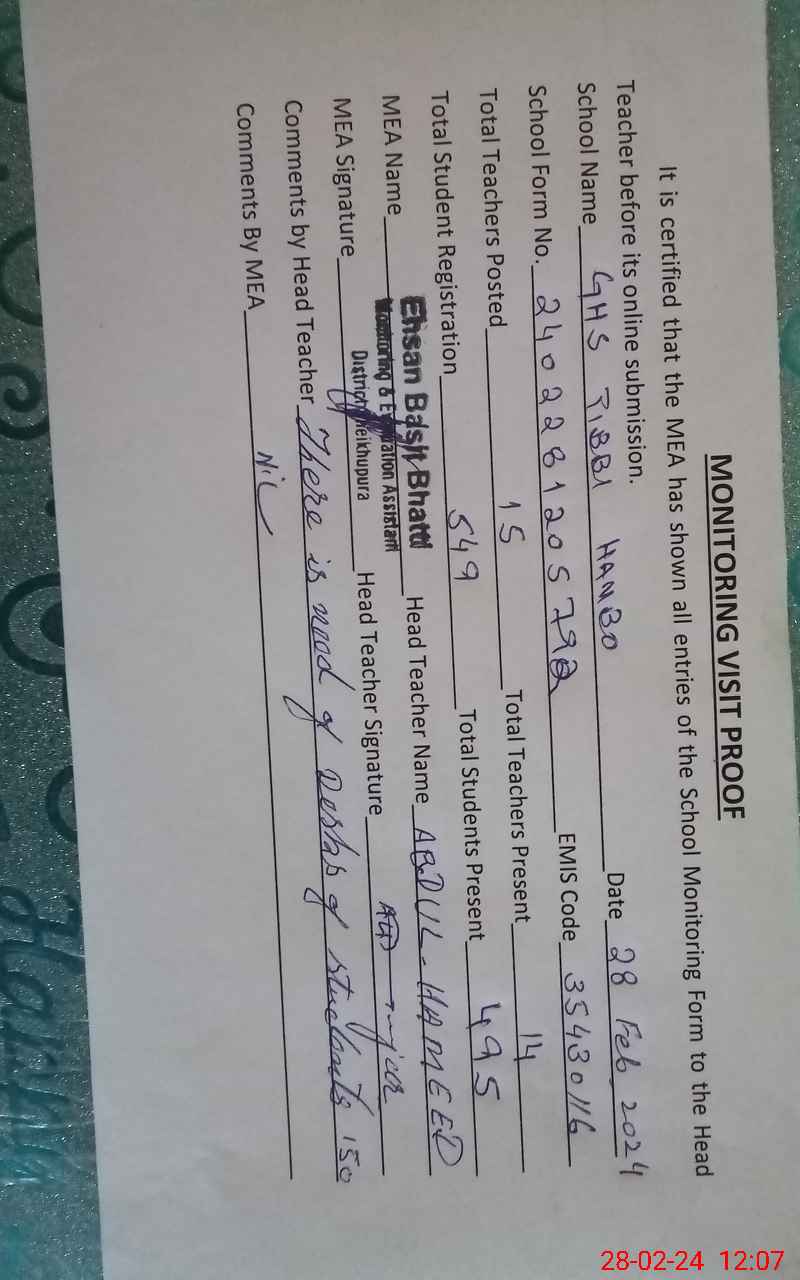 MONITORING VISIT PROOF
It is certified that the MEA has shown all entries of the School Monitoring Form to the Head
Teacher before its online submission.
School Name GHS TIBBI HAMBO Date 28 Feb 2024
School Form No. 2402281205792 EMIS Code 35430116
Total Teachers Posted 15 Total Teachers Present 14
Total Student Registration 549 Total Students Present 495
MEA Name Ehsan Basit Bhatti Head Teacher Name ABDUL-HAMEED
Monitoring & Evaluation Assistant
District Sheikhupura
MEA Signature Head Teacher Signature
Comments by Head Teacher There is need of Desks of students 150
Comments By MEA Nil
28-02-24 12:07